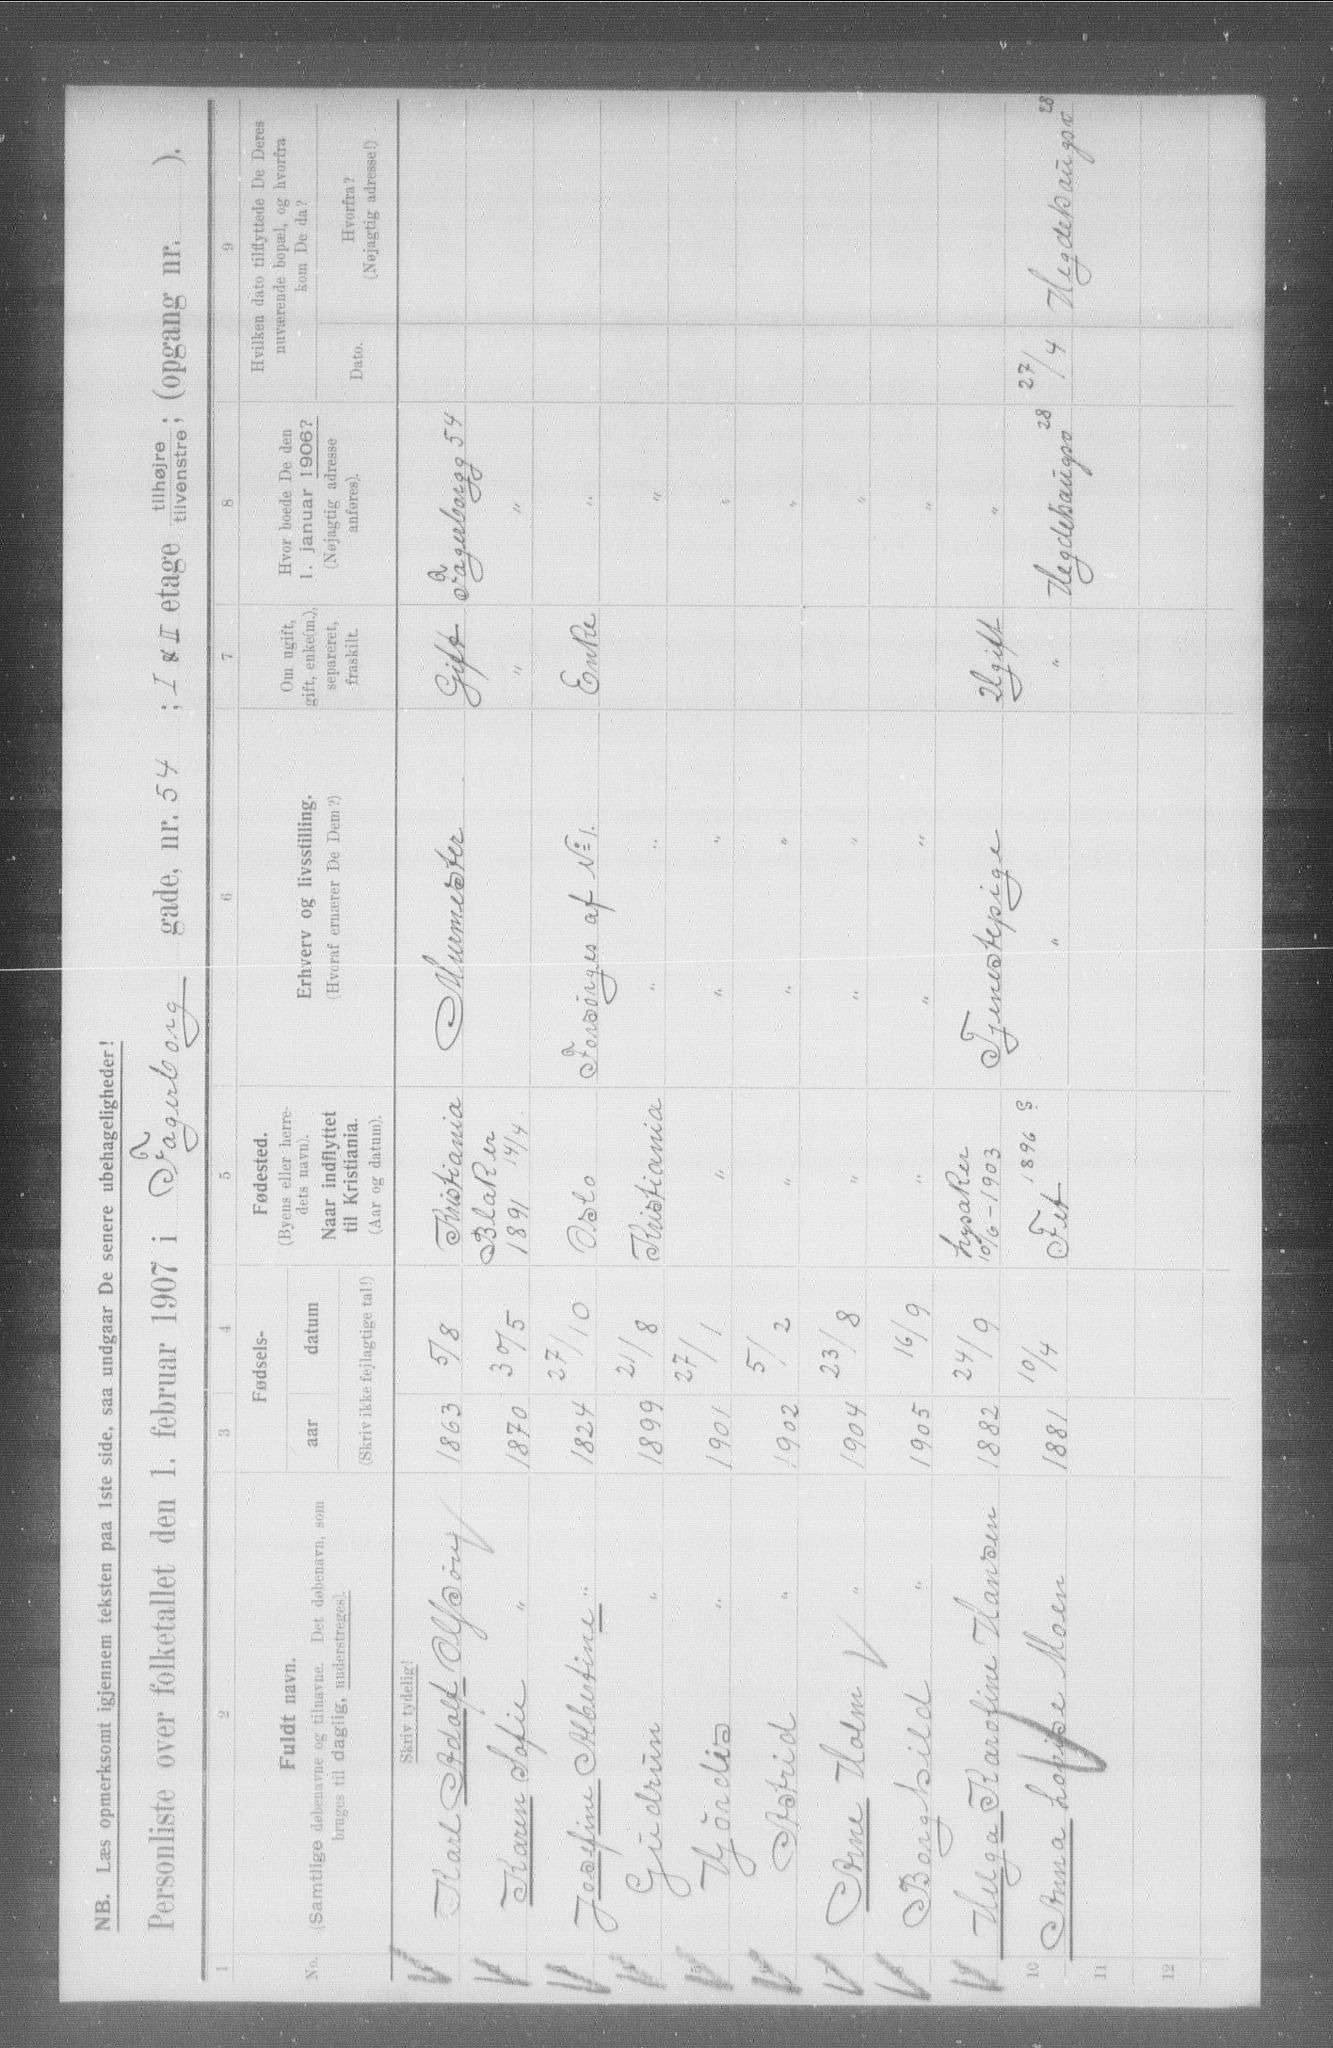 NB. Læs opmerksomt igjennem teksten paa 1ste side, saa undgaar De senere ubehageligheder!
Personliste over folketallet den 1. februar 1907 i Fagerborg gade, nr. 54 ; I & II etage tilhøjre tilvenstre ; (opgang nr. ).
1 2 3 4 5 6 7 8 9
No.
Fuldt navn.
(Samtlige døbenavne og tilnavne. Det døbenavn, som
bruges til daglig, understreges).
Fødsels-
aar datum
(Skriv ikke fejlagtige tal!)
Fødested.
(Byens eller herre-
dets navn).
Naar indflyttet
til Kristiania.
(Aar og datum).
Erhverv og livsstilling.
(Hvoraf ernærer De Dem?)
Om ugift,
gift, enke(m.),
separeret,
fraskilt.
Hvor boede De den
1. januar 1906?
(Nøjagtig adresse
anføres).
Hvilken dato tilflyttede De Deres
nuværende bopæl, og hvorfra
kom De da?
Dato.
Hvorfra?
(Nøjagtig adresse!)
Skriv tydelig!
Karl Adolf 1863 5/8 Kristiania Murmester Gift Fagerborgg 54
Karen Sofie " 1870 30/5 Blaker 1891 14/4 " "
Josefine Albertine " 1824 27/10 Oslo Forsörges af No 1. Enke "
Gudrun " 1899 21/8 Kristiania " " "
Hjördis " 1901 27/1 " " " "
Astrid " 1902 5/2 " " " "
Arne Holm " 1904 23/8 " " " "
Borghild " 1905 16/9 " " " "
Helga Karoline Hansen 1882 24/9 Lysaker 10/6-1903 Tjenestepige Ugift "
10 Anna Lovise Moen 1881 10/4 Fet 1896 ? " " Hegdehaugsv 28 27/4 Hegdehaugsv 28
11
12